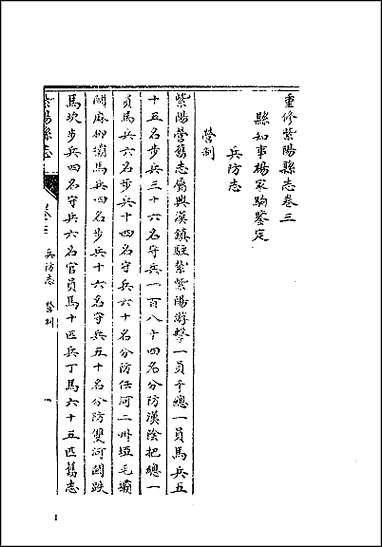 重修紫陽縣志卷三
縣知事楊家駒鑒定
兵防志
營制
紫陽營舊志屬興漢鎮駐紮紫陽游擊一員千總一員馬兵五
十五名步兵三十六名守兵一百八十四名分防漢陰把總一
員馬兵六名步兵十四名守兵六十名分防任河二州埡毛壩
關麻柳壩馬兵四名步兵十六名守兵五十名分防雙河關跌
馬坎步兵四名守兵六名官員馬十匹兵丁馬六十五匹舊志
紫陽縣志
卷三 兵防志 營制
一
1